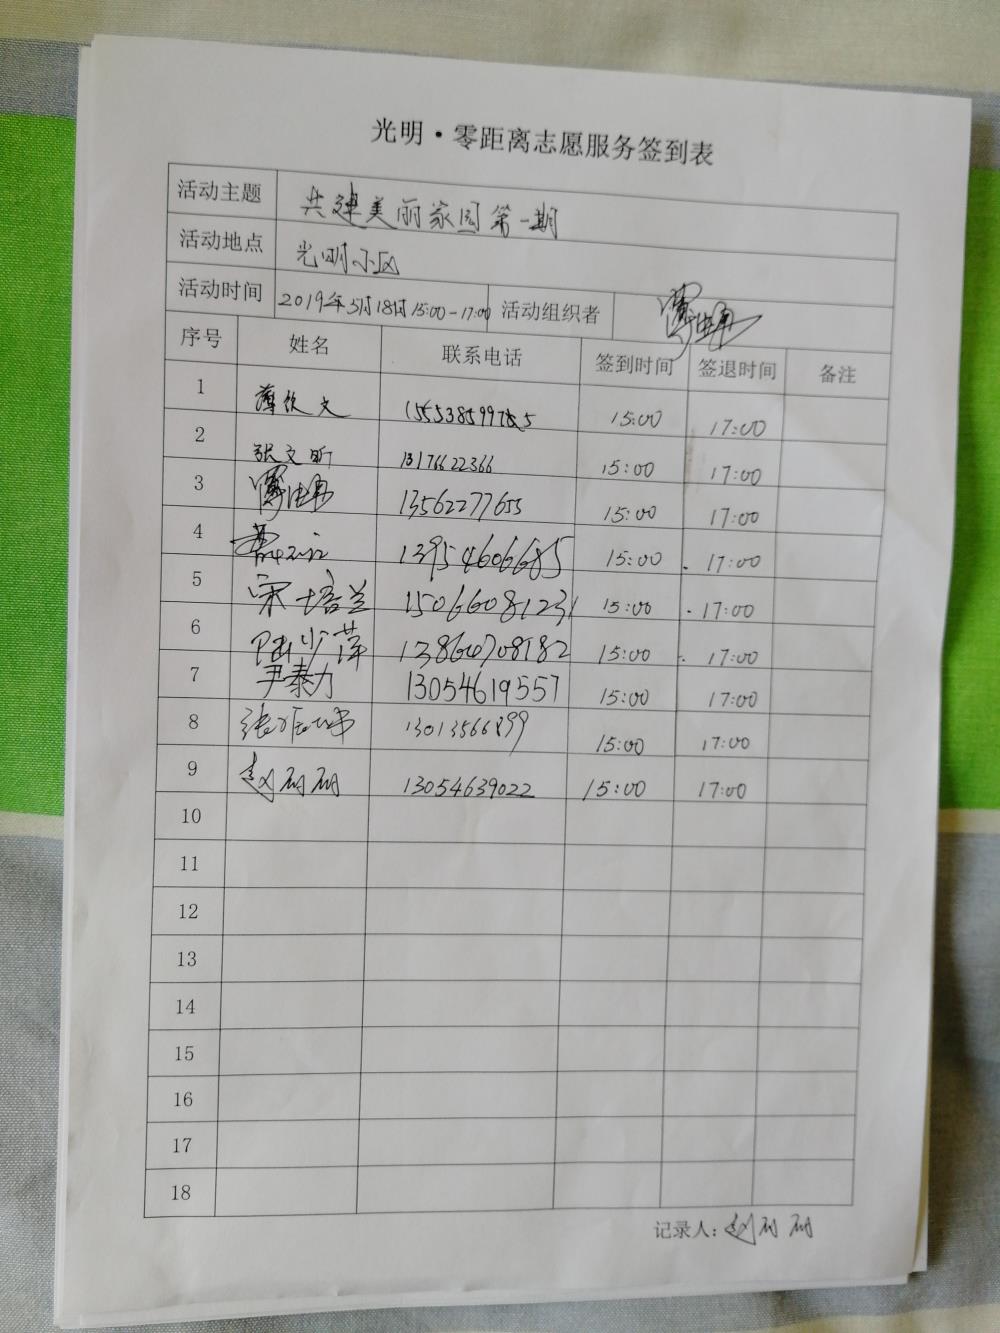 光明·零距离志愿服务签到表
活动主题 共建美丽家园第一期
活动地点 光明小区
活动时间 2019年5月18日 15:00-17:00 活动组织者
序号 姓名 联系电话 签到时间 签退时间 备注
1 文 15:00 17:00
2 张文昕 13176622366 15:00 17:00
3 13562277655 15:00 17:00
4 13954606685 15:00 17:00
5 宋培兰 15066081231 15:00 17:00
6 陆少萍 13864708182 15:00 17:00
7 尹泰力 13054619557 15:00 17:00
8 张 13013566899 15:00 17:00
9 赵丽丽 13054639022 15:00 17:00
10
11
12
13
14
15
16
17
18
记录人:赵丽丽